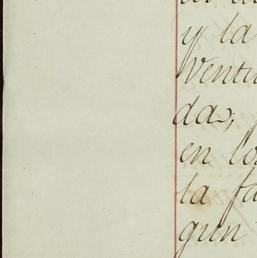 y la
Ventu
das,
en los
la fa
guen